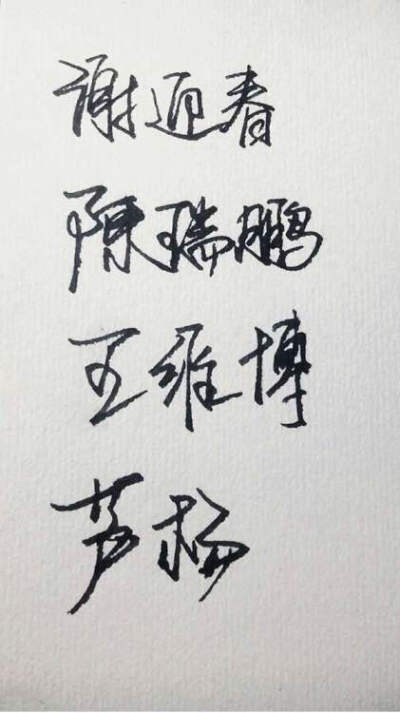 谢迎春
陈瑞鹏
王维博
芦杨